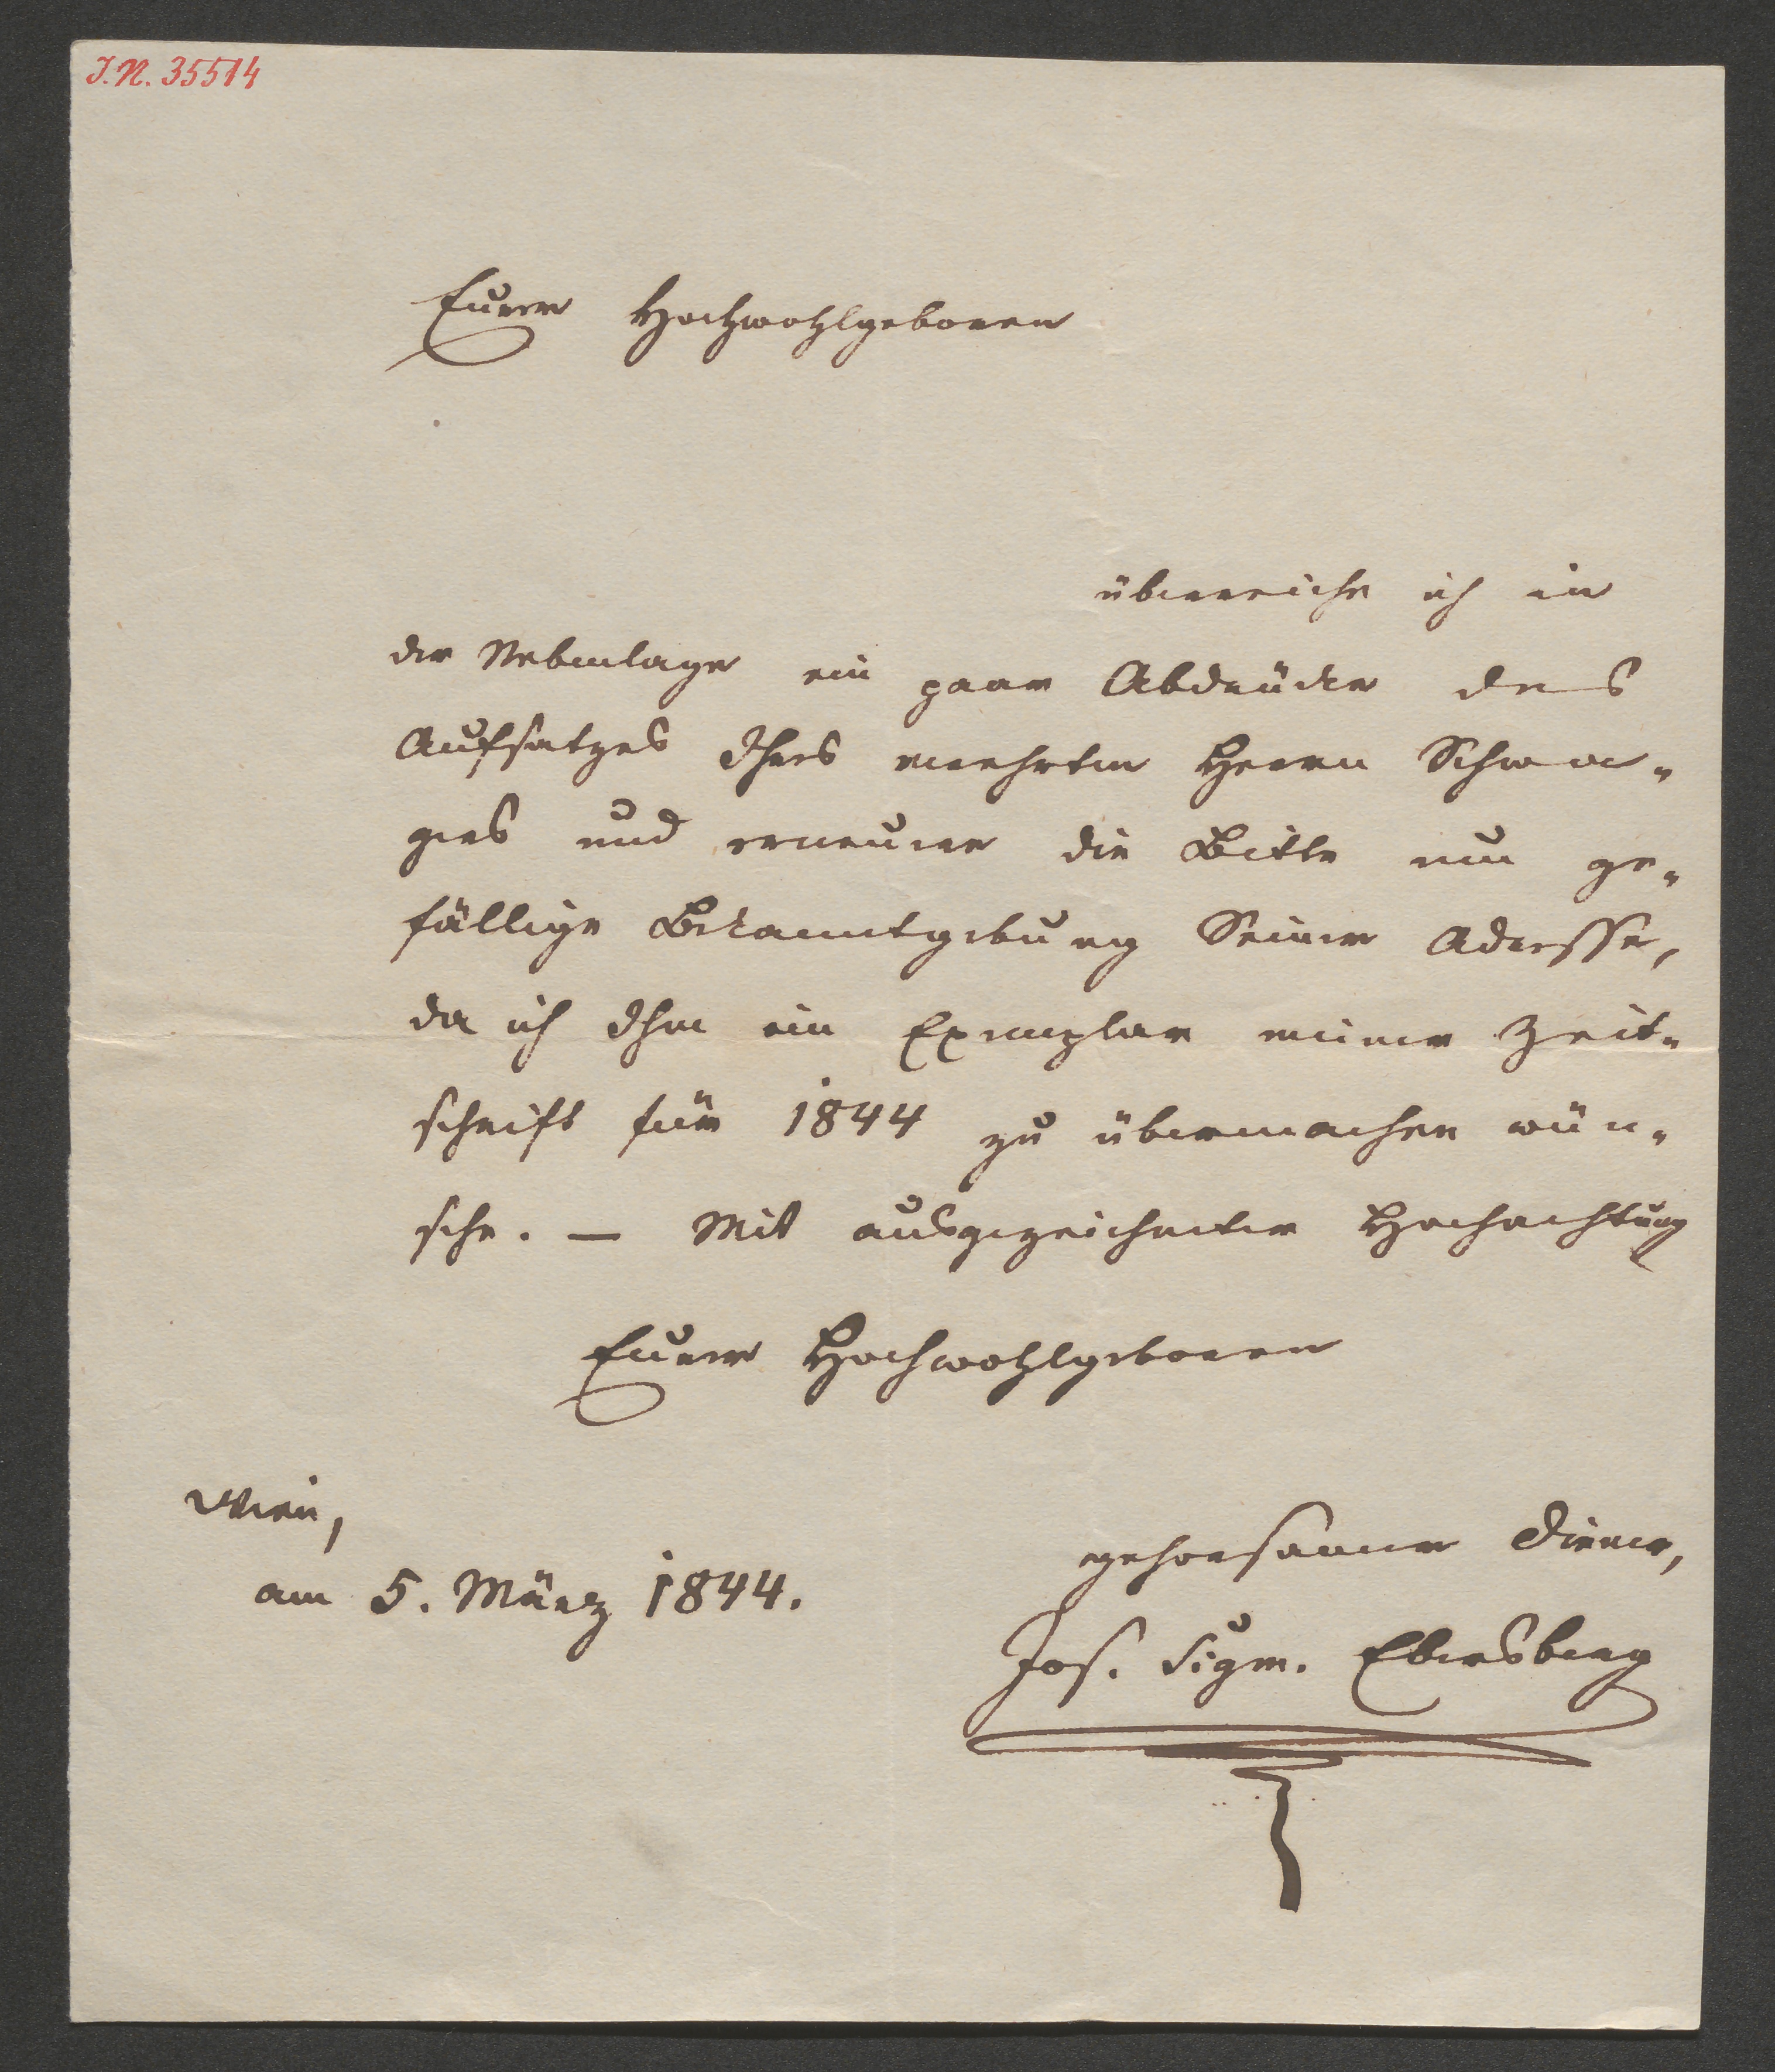 J.N. 35514
Euer Hochwohlgeboren
überreiche ich in
der Nebenlage ein paar Abdrücke des
Aufsatzes Ihres verehrten Herrn Schwa-
gers und erneuere die Bitte um ge-
fällige Bekanntgebung Seiner Adresse,
da ich Ihm ein Exemplar meiner Zeit-
schrift für 1844 zu übermachen wün-
sche. — Mit ausgezeichneter Hochachtung
Euer Hochwohlgeboren
Wien,
am 5. März 1844.
gehorsamer Diener,
Jos. Sigm. Ebersberg